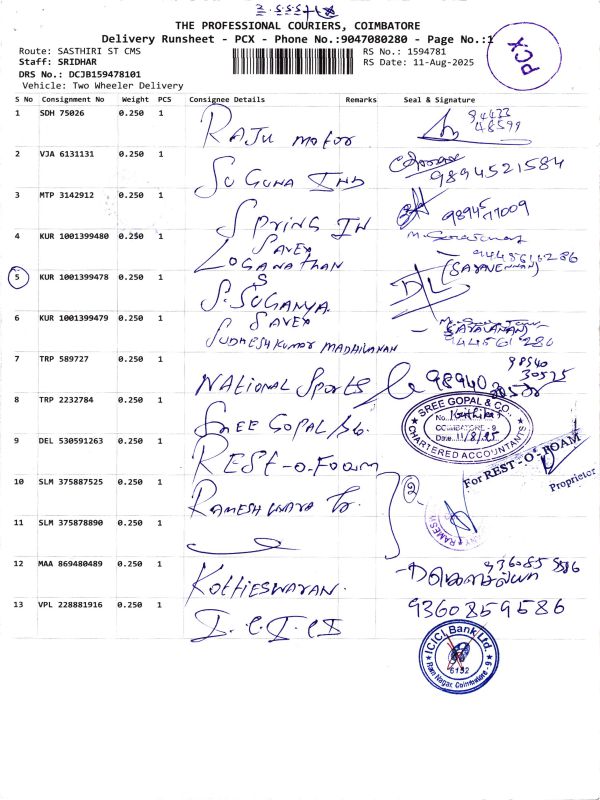 THE PROFESSIONAL COURIERS, COIMBATORE
Delivery Runsheet - PCX - Phone No.:9047080280 - Page No.:1
PCX
Route: SASTHIRI ST CMS
RS No.: 1594781
Staff: SRIDHAR
RS Date: 11-Aug-2025
DRS No.: DCJB159478101
Vehicle: Two Wheeler Delivery
S No Consignment No Weight PCS Consignee Details Remarks Seal & Signature
1 SDH 75026 0.250 1 RAJU motor 94433 48599
2 VJA 6131131 0.250 1 SUGUNA IND 9894521584
3 MTP 3142912 0.250 1 SPRING IN
4 KUR 1001399480 0.250 1 SAVEX LOGANATHAN
5 KUR 1001399478 0.250 1 S. SUGANYA
6 KUR 1001399479 0.250 1 SAVEX SUDHESH KUMAR (SARAVANAN)
7 TRP 589727 0.250 1 NATIONAL SPORTS
8 TRP 2232784 0.250 1 SREE GOPAL
SREE GOPAL & CO.,
No.
COIMBATORE - 9
Date 11/8/25
CHARTERED ACCOUNTANTS
9 DEL 530591263 0.250 1 REST-O-FOAM
For REST-O-FOAM
Proprietor
10 SLM 375887525 0.250 1 RAMESHWARA 2
11 SLM 375878890 0.250 1
12 MAA 869480489 0.250 1
13 VPL 228881916 0.250 1 I.C.I.C.I 9360859586
ICICI Bank Ltd.
6152
Ram Nagar, Coimbatore - 9